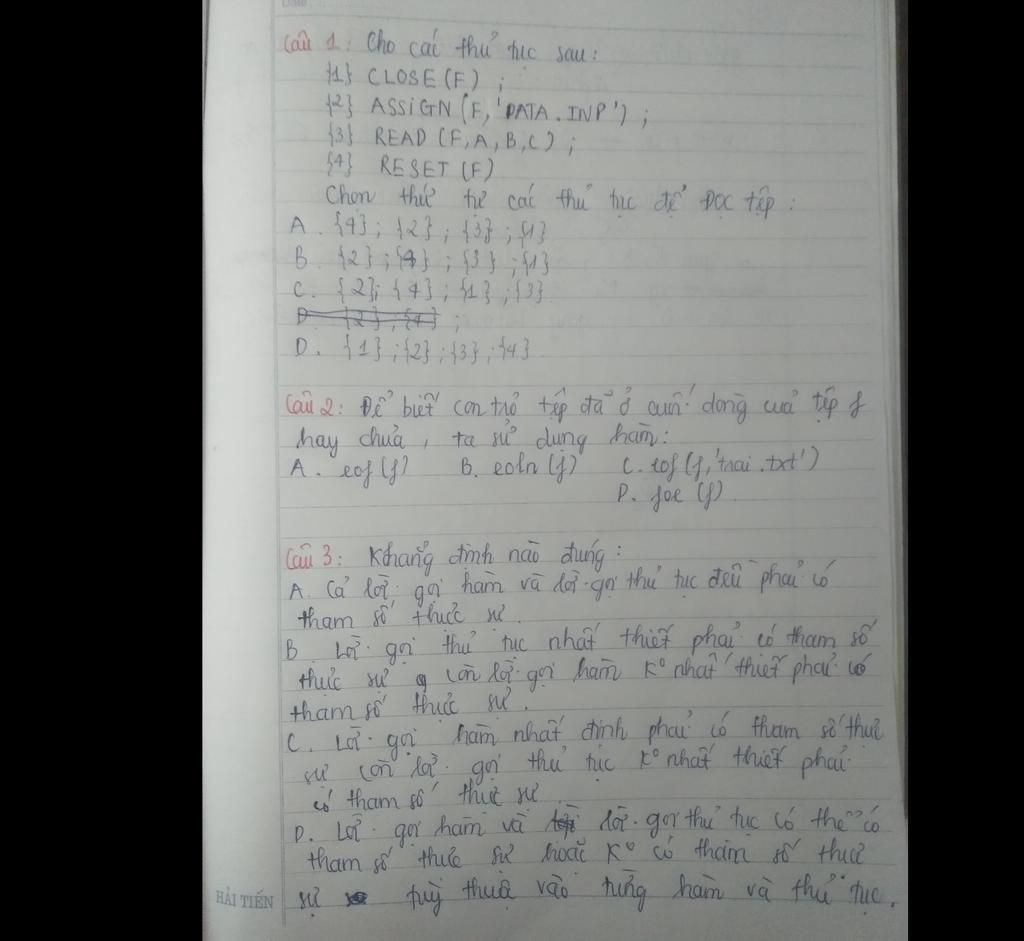 Câu 1: Cho các thủ tục sau:
{1} CLOSE (F) ;
{2} ASSIGN (F, 'DATA.INP') ;
{3} READ (F,A,B,C) ;
{4} RESET (F)
Chọn thứ tự các thủ tục để ĐỌC tệp :
A. {4} ; {2} ; {3} ; {1}
B. {2} ; {4} ; {3} ; {1}
C. {2}; {4} ; {1} ; {3}
D. {2} ; {4} ;
D. {1} ; {2} ; {3} ; {4}
Câu 2: Để biết con trỏ tệp đã ở cuối dòng cuả tệp f
hay chưa, ta sử dụng hàm:
A. eof (f) B. eoln (f) C. eof (f,'trai.txt')
D. foe (f)
Câu 3: Khẳng định nào đúng :
A. Cả lời gọi hàm và lời gọi thủ tục đều phải có
tham số thực sự.
B. Lời gọi thủ tục nhất thiết phải có tham số
thực sự còn lời gọi hàm K° nhất thiết phải có
tham số thực sự.
C. Lời gọi hàm nhất định phải có tham số thực
sự còn lời gọi thủ tục K° nhất thiết phải
có tham số thực sự
D. Lời gọi hàm và lời gọi thủ tục có thể có
tham số thực sự hoặc K° có tham số thực
sự tuỳ thuộc vào từng hàm và thủ tục.
HẢI TIẾN